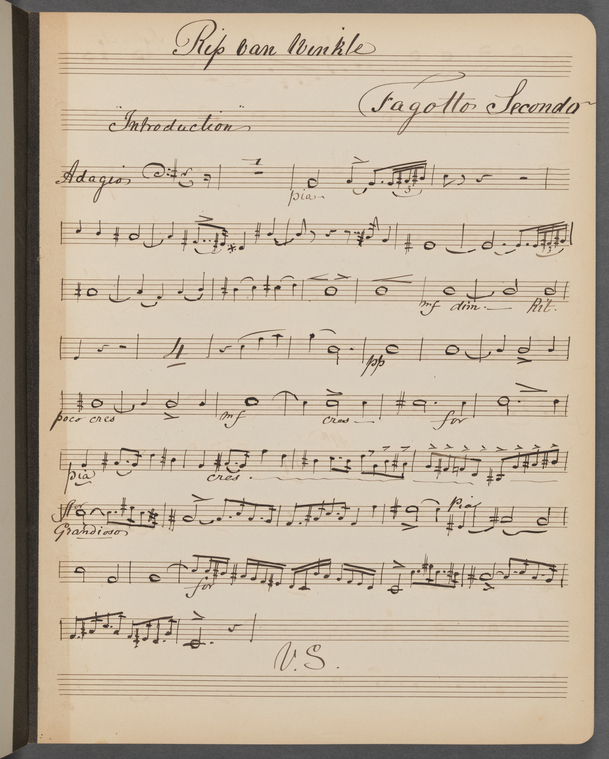 Rip van Winkle
Fagotto Secondo
"Introduction"
Adagio
1
pia
3
mf dim. Rit.
4
pp
poco cres mf cres for
pia cres.
ff pia
Grandioso
for
V.S.